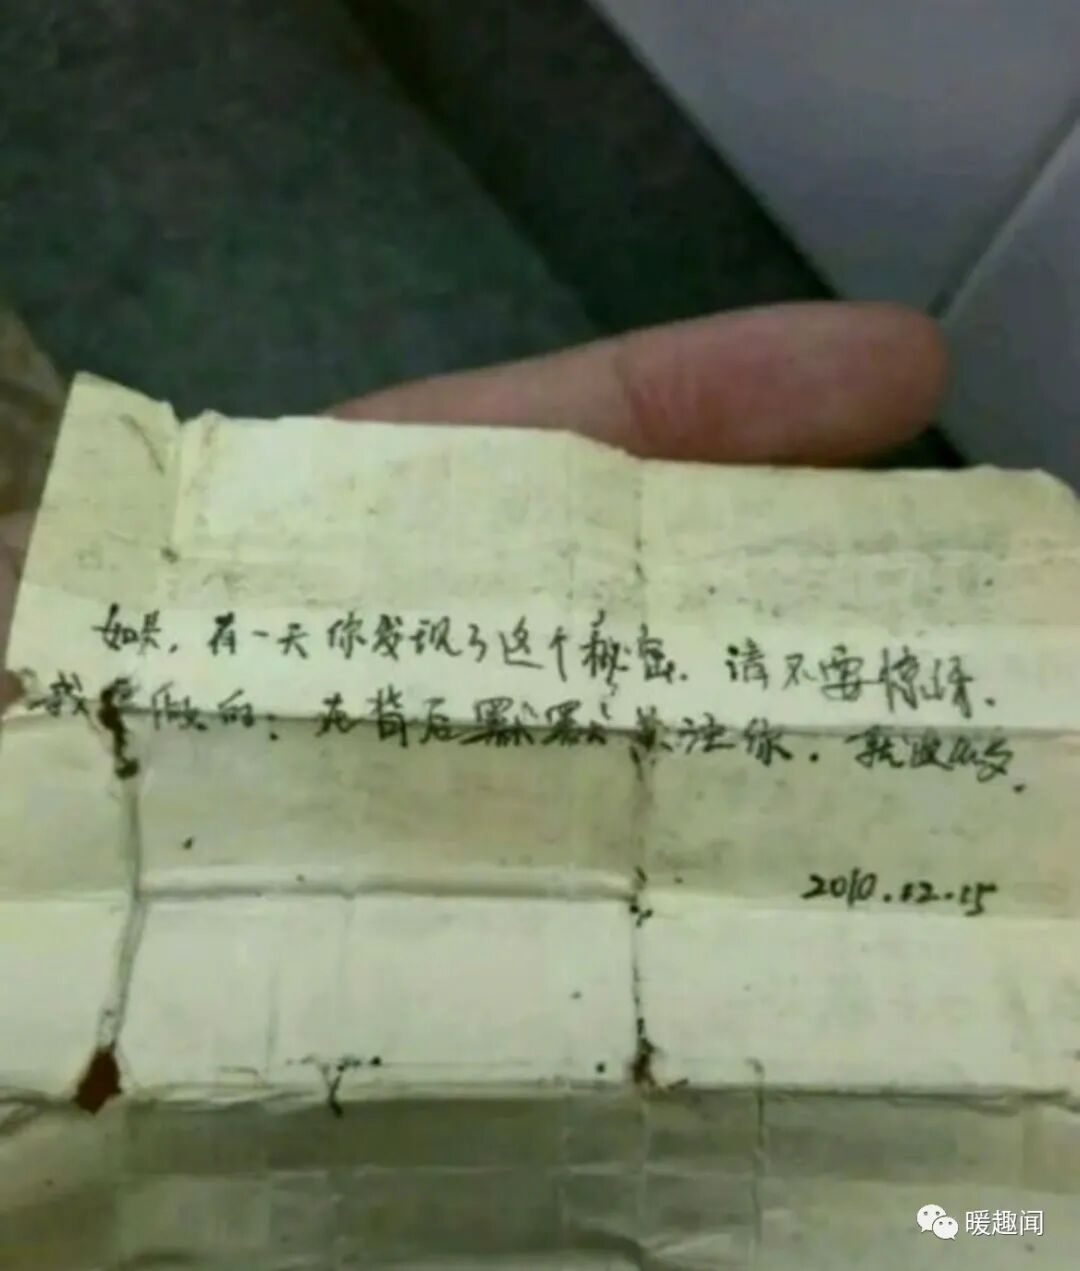 如果,有一天你发现了这个秘密.请不要惊讶.
我做的:在背后默默关注你.
2010.12.15
暖趣闻